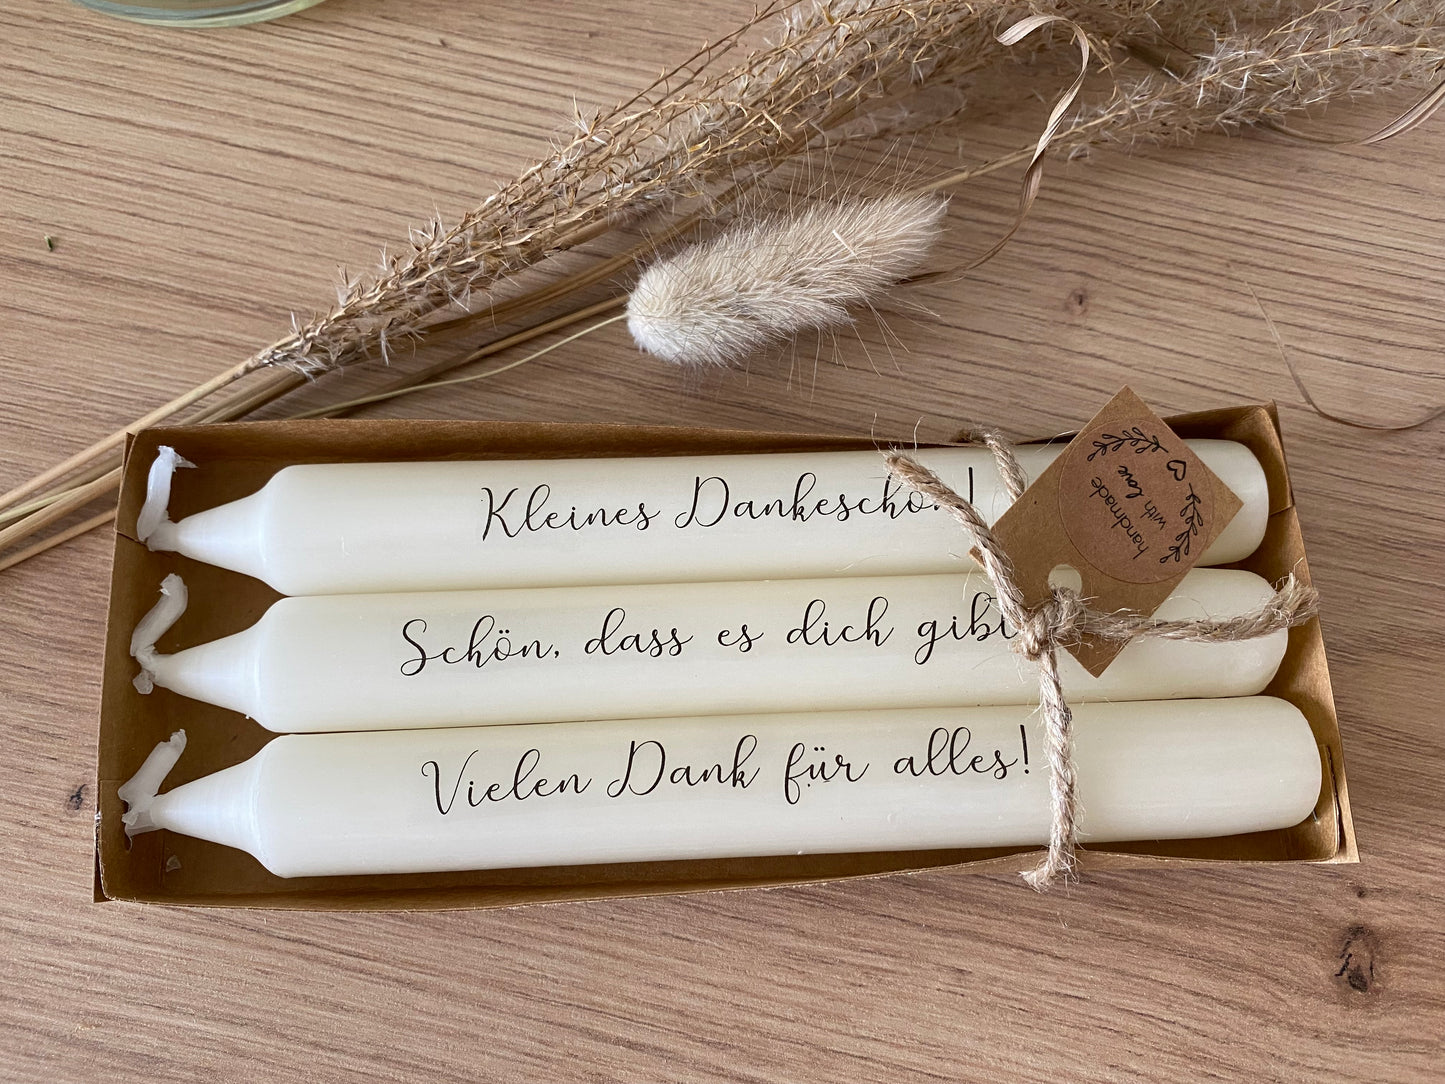 Kleines Dankeschö !
Schön, dass es dich gibt
Vielen Dank für alles!
handmade
with love